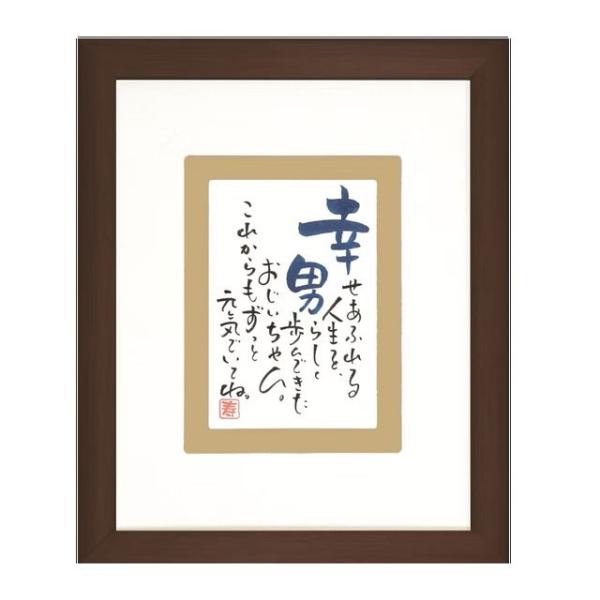 幸せあふれる
人生を、
男らしく
歩んできた
おじいちゃん。
これからもずっと
元気でいてね。
寿